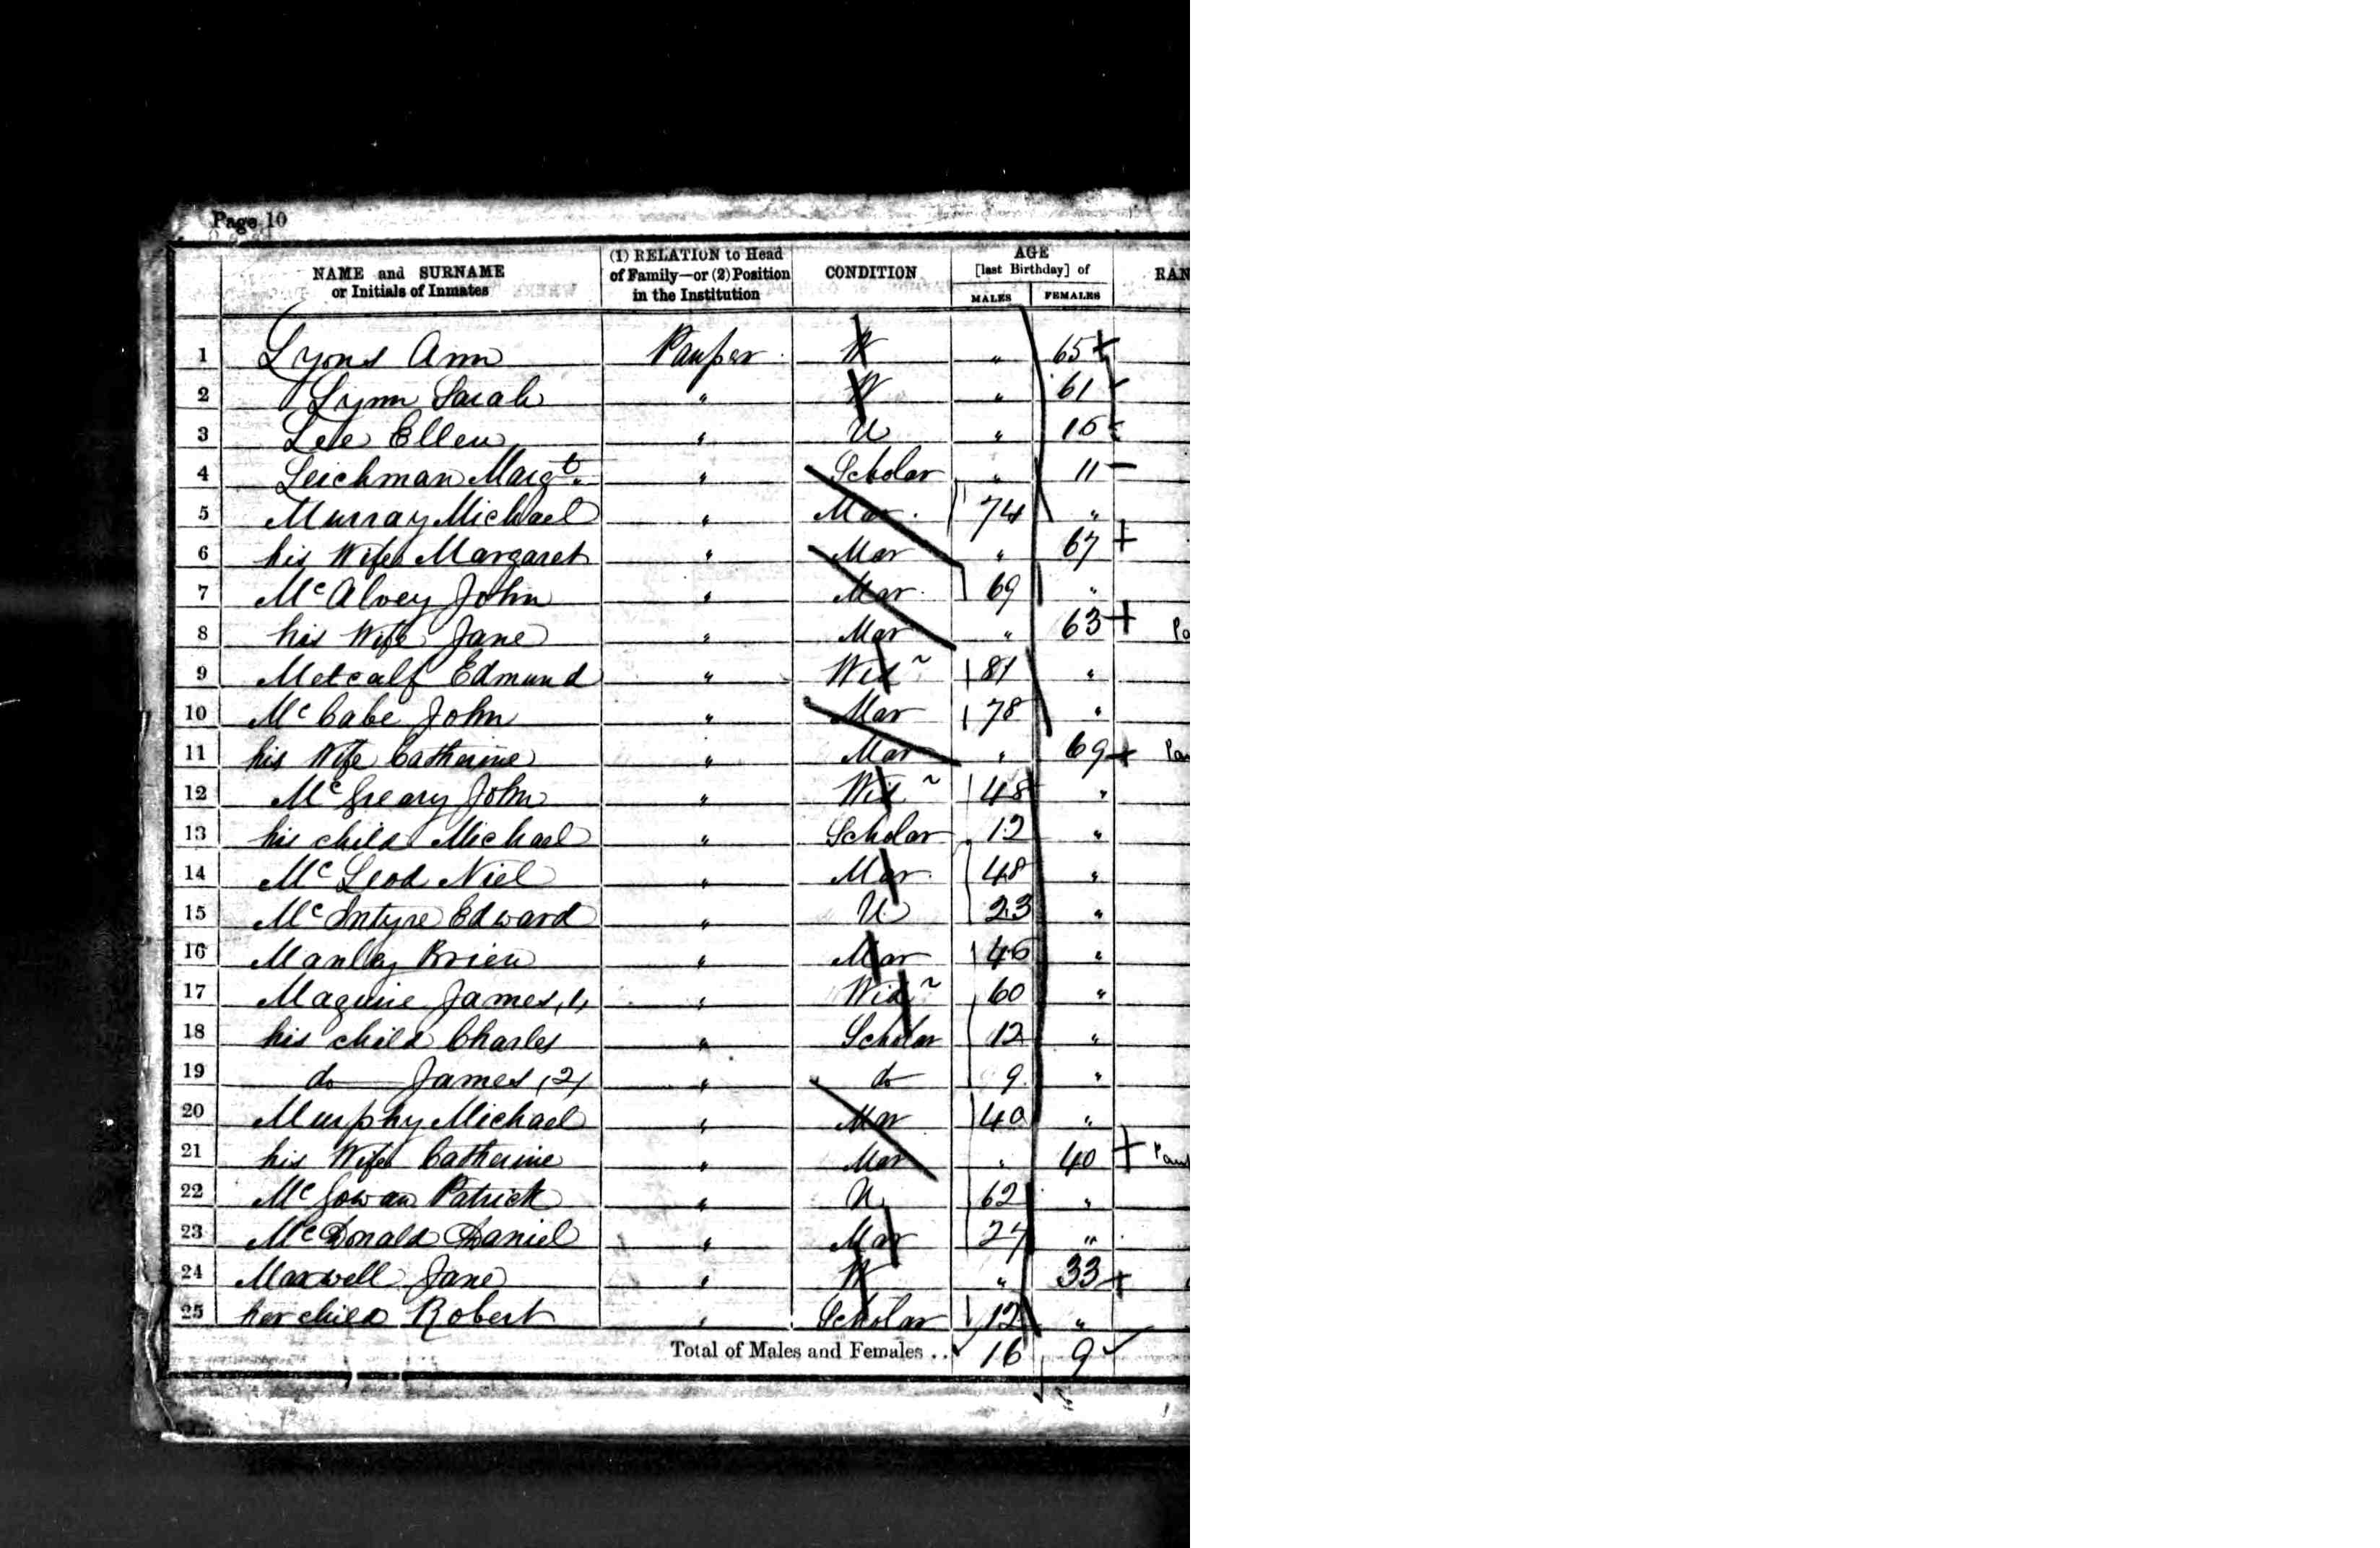 Page 10
NAME and SURNAME or Initials of Inmates (1) RELATION to Head of Family—or (2) Position in the Institution CONDITION AGE [last Birthday] of MALES FEMALES RAN
1 Lyons Ann Pauper W " 65
2 Lynn Sarah " W " 61
3 Lee Ellen " U " 16
4 Leichman Margt. " Scholar " 11
5 Murray Michael " Mar. 74 "
6 his Wife Margaret " Mar " 67
7 Mc Alvey John " Mar. 69 "
8 his Wife Jane " Mar " 63
9 Metcalf Edmund " Widr 81 "
10 Mc Cabe John " Mar 78 "
11 his Wife Catherine " Mar " 69
12 Mc Greary John " Widr 48 "
13 his child Michael " Scholar 12 "
14 Mc Leod Niel " Mar. 48 "
15 Mc Intyre Edward " U 23 "
16 Manley Brien " Mar 46 "
17 Maguire James (1) " Widr 60 "
18 his child Charles " Scholar 12 "
19 do James (2) " do 9 "
20 Murphy Michael " Mar 40 "
21 his Wife Catherine " Mar " 40
22 Mc Gowan Patrick " U 62 "
23 Mc Donald Daniel " Mar 27 "
24 Maxwell Jane " W " 33
25 her child Robert " Scholar 12 "
Total of Males and Females .. 16 9